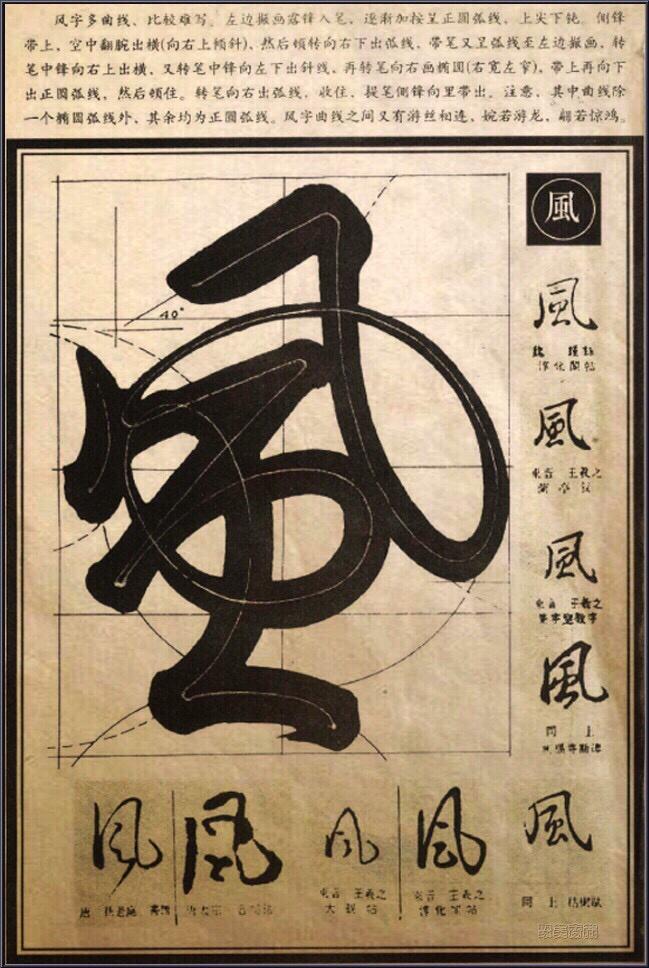 风字多曲线、比较难写。左边撇画露锋入笔,逐渐加按呈正圆弧线,上尖下钝。侧锋
带上,空中翻腕出横(向右上倾斜),然后顿转向右下出弧线,带笔又呈弧线至左边撇画,转
笔中锋向右上出横,又转笔中锋向左下出斜线,再转笔向右画椭圆(右宽左窄),带上再向下
出正圆弧线,然后顿住。转笔向右出弧线,收住,提笔侧锋向里带出。注意,其中曲线除
一个椭圆弧线外,其余均为正圆弧线。风字曲线之间又有游丝相连,婉若游龙,翩若惊鸿。
風
40°
風
風
淳化阁帖
風
東晋 王羲之
風
東晋 王羲之
風
同上
風
風
風
東晋 王羲之
大观帖
風
東晋 王羲之
風
同上 枯樹賦